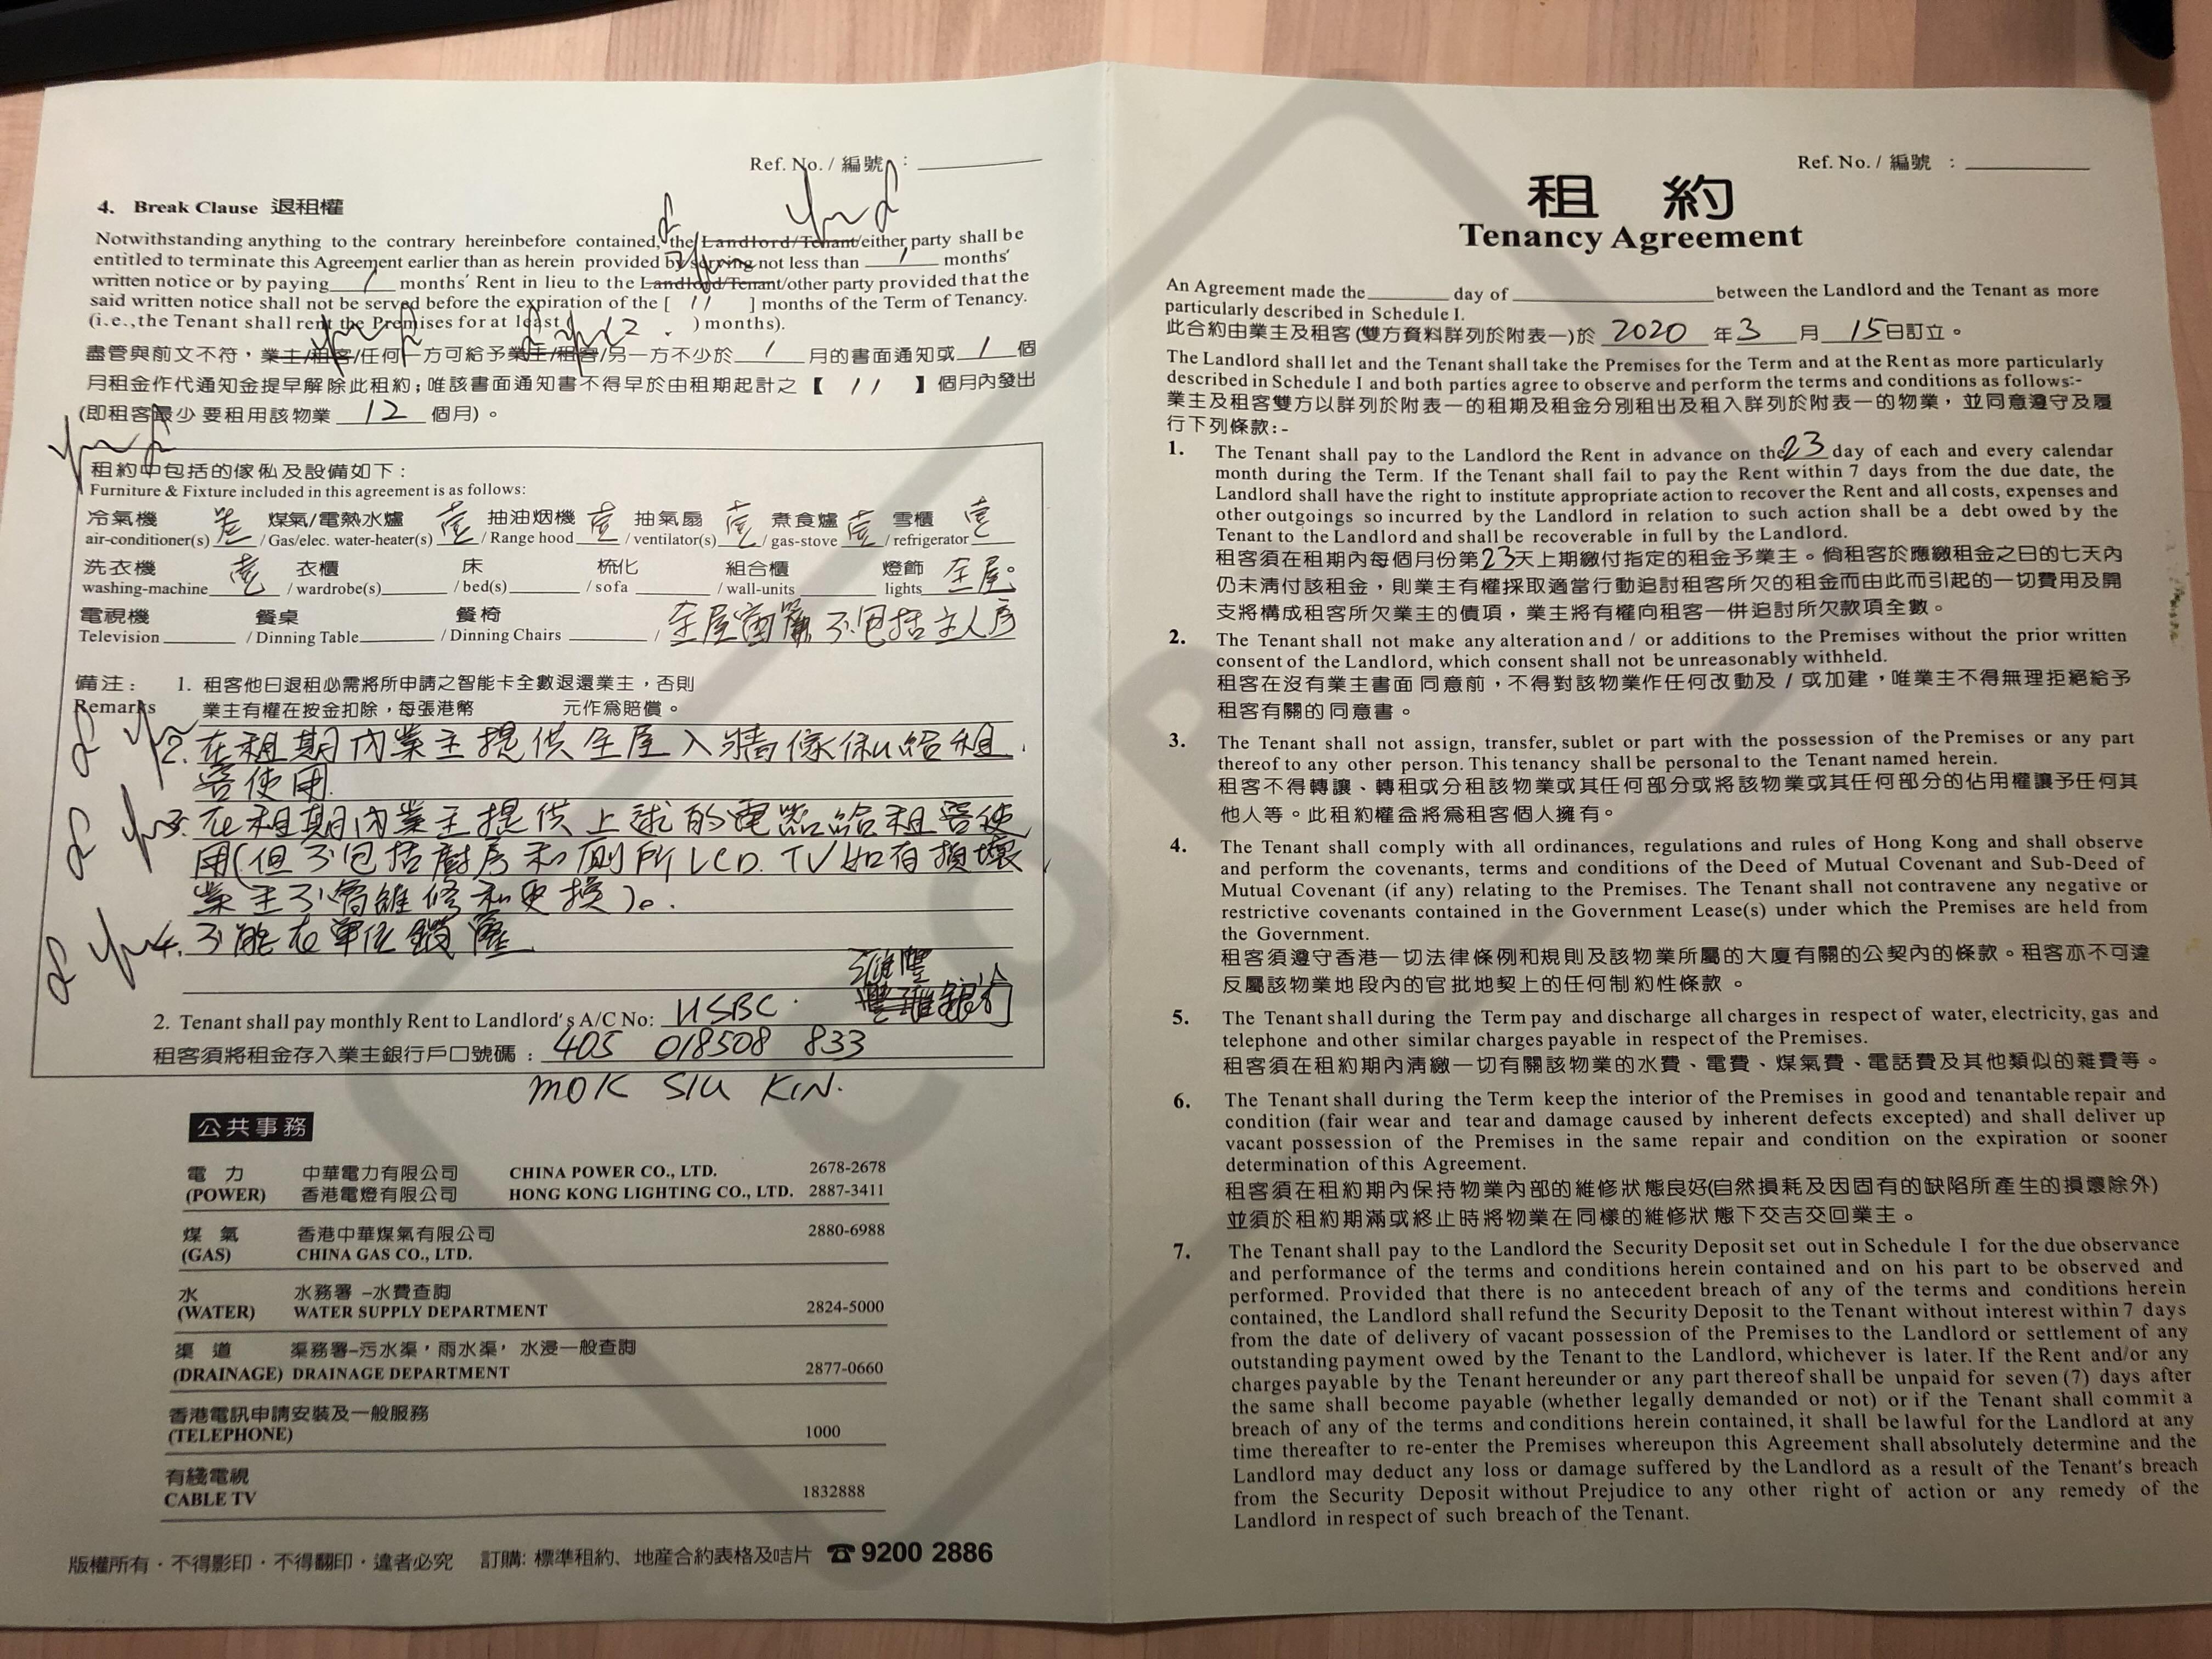 Ref. No. / 編號 :
4. Break Clause 退租權
Notwithstanding anything to the contrary hereinbefore contained, the Landlord/Tenant/either party shall be
entitled to terminate this Agreement earlier than as herein provided by serving not less than 1 months'
written notice or by paying 1 months' Rent in lieu to the Landlord/Tenant/other party provided that the
said written notice shall not be served before the expiration of the [ 11 ] months of the Term of Tenancy.
(i.e., the Tenant shall rent the Premises for at least ( 12 ) months).
盡管與前文不符，業主/租客/任何一方可給予業主/租客/另一方不少於 1 月的書面通知或 1 個
月租金作代通知金提早解除此租約；唯該書面通知書不得早於由租期起計之【 11 】個月內發出
(即租客最少要租用該物業 12 個月)。
租約中包括的傢俬及設備如下：
Furniture & Fixture included in this agreement is as follows:
冷氣機 煤氣/電熱水爐 壹 抽油烟機 壹 抽氣扇 壹 煮食爐 壹 雪櫃 壹
air-conditioner(s) / Gas/elec. water-heater(s) / Range hood / ventilator(s) / gas-stove / refrigerator
洗衣機 壹 衣櫃 床 梳化 組合櫃 燈飾 全屋
washing-machine / wardrobe(s) / bed(s) / sofa / wall-units lights
電視機 餐桌 餐椅 全屋窗簾 不包括主人房
Television / Dinning Table / Dinning Chairs /
備注： 1. 租客他日退租必需將所申請之智能卡全數退還業主，否則
Remarks 業主有權在按金扣除，每張港幣 元作為賠償。
2. 在租期內業主提供全屋入牆傢俬給租
客使用.
3. 在租期內業主提供上述的電器給租客使
用(但不包括廚房和厠所LCD. TV如有損壞
業主不會維修和更換)。
4. 不能在單位
滙豐
銀行
2. Tenant shall pay monthly Rent to Landlord's A/C No: HSBC
租客須將租金存入業主銀行戶口號碼： 405 018508 833
MOK SIU KIN.
公共事務
電 力 中華電力有限公司 CHINA POWER CO., LTD. 2678-2678
(POWER) 香港電燈有限公司 HONG KONG LIGHTING CO., LTD. 2887-3411
煤 氣 香港中華煤氣有限公司 2880-6988
(GAS) CHINA GAS CO., LTD.
水 水務署 –水費查詢
(WATER) WATER SUPPLY DEPARTMENT 2824-5000
渠 道 渠務署–污水渠，雨水渠，水浸一般查詢
(DRAINAGE) DRAINAGE DEPARTMENT 2877-0660
香港電訊申請安裝及一般服務
(TELEPHONE) 1000
有綫電視
CABLE TV 1832888
版權所有 · 不得影印 · 不得翻印 · 違者必究 訂購: 標準租約、地產合約表格及咭片 ☎ 9200 2886
Ref. No. / 編號 :
租 約
Tenancy Agreement
An Agreement made the day of between the Landlord and the Tenant as more
particularly described in Schedule I.
此合約由業主及租客 (雙方資料詳列於附表一) 於 2020 年 3 月 15 日訂立。
The Landlord shall let and the Tenant shall take the Premises for the Term and at the Rent as more particularly
described in Schedule I and both parties agree to observe and perform the terms and conditions as follows:-
業主及租客雙方以詳列於附表一的租期及租金分別租出及租入詳列於附表一的物業，並同意遵守及履
行下列條款:-
1. The Tenant shall pay to the Landlord the Rent in advance on the 23 day of each and every calendar
month during the Term. If the Tenant shall fail to pay the Rent within 7 days from the due date, the
Landlord shall have the right to institute appropriate action to recover the Rent and all costs, expenses and
other outgoings so incurred by the Landlord in relation to such action shall be a debt owed by the
Tenant to the Landlord and shall be recoverable in full by the Landlord.
租客須在租期內每個月份第23天上期繳付指定的租金予業主。倘租客於應繳租金之日的七天內
仍未清付該租金，則業主有權採取適當行動追討租客所欠的租金而由此而引起的一切費用及開
支將構成租客所欠業主的債項，業主將有權向租客一併追討所欠款項全數。
2. The Tenant shall not make any alteration and / or additions to the Premises without the prior written
consent of the Landlord, which consent shall not be unreasonably withheld.
租客在沒有業主書面同意前，不得對該物業作任何改動及 / 或加建，唯業主不得無理拒絕給予
租客有關的同意書。
3. The Tenant shall not assign, transfer, sublet or part with the possession of the Premises or any part
thereof to any other person. This tenancy shall be personal to the Tenant named herein.
租客不得轉讓、轉租或分租該物業或其任何部分或將該物業或其任何部分的佔用權讓予任何其
他人等。此租約權益將為租客個人擁有。
4. The Tenant shall comply with all ordinances, regulations and rules of Hong Kong and shall observe
and perform the covenants, terms and conditions of the Deed of Mutual Covenant and Sub-Deed of
Mutual Covenant (if any) relating to the Premises. The Tenant shall not contravene any negative or
restrictive covenants contained in the Government Lease(s) under which the Premises are held from
the Government.
租客須遵守香港一切法律條例和規則及該物業所屬的大廈有關的公契內的條款。租客亦不可違
反屬該物業地段內的官批地契上的任何制約性條款。
5. The Tenant shall during the Term pay and discharge all charges in respect of water, electricity, gas and
telephone and other similar charges payable in respect of the Premises.
租客須在租約期內清繳一切有關該物業的水費、電費、煤氣費、電話費及其他類似的雜費等。
6. The Tenant shall during the Term keep the interior of the Premises in good and tenantable repair and
condition (fair wear and tear and damage caused by inherent defects excepted) and shall deliver up
vacant possession of the Premises in the same repair and condition on the expiration or sooner
determination of this Agreement.
租客須在租約期內保持物業內部的維修狀態良好(自然損耗及因固有的缺陷所產生的損壞除外)
並須於租約期滿或終止時將物業在同樣的維修狀態下交吉交回業主。
7. The Tenant shall pay to the Landlord the Security Deposit set out in Schedule I for the due observance
and performance of the terms and conditions herein contained and on his part to be observed and
performed. Provided that there is no antecedent breach of any of the terms and conditions herein
contained, the Landlord shall refund the Security Deposit to the Tenant without interest within 7 days
from the date of delivery of vacant possession of the Premises to the Landlord or settlement of any
outstanding payment owed by the Tenant to the Landlord, whichever is later. If the Rent and/or any
charges payable by the Tenant hereunder or any part thereof shall be unpaid for seven (7) days after
the same shall become payable (whether legally demanded or not) or if the Tenant shall commit a
breach of any of the terms and conditions herein contained, it shall be lawful for the Landlord at any
time thereafter to re-enter the Premises whereupon this Agreement shall absolutely determine and the
Landlord may deduct any loss or damage suffered by the Landlord as a result of the Tenant's breach
from the Security Deposit without Prejudice to any other right of action or any remedy of the
Landlord in respect of such breach of the Tenant.
COPY